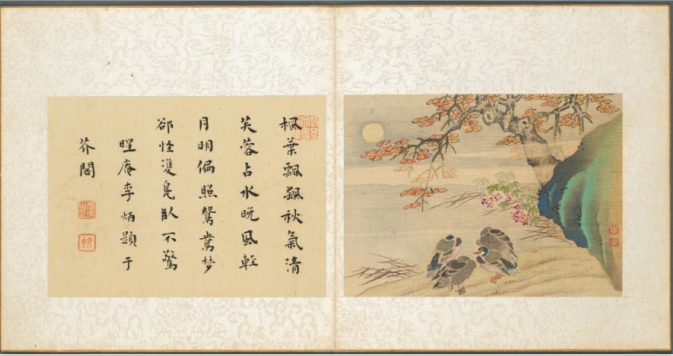 楓葉飄飄秋氣清
芙蓉占水晚風輕
月明偏照鴛鴦夢
卻恠雙鳧臥不驚
李炳題于
芥閣